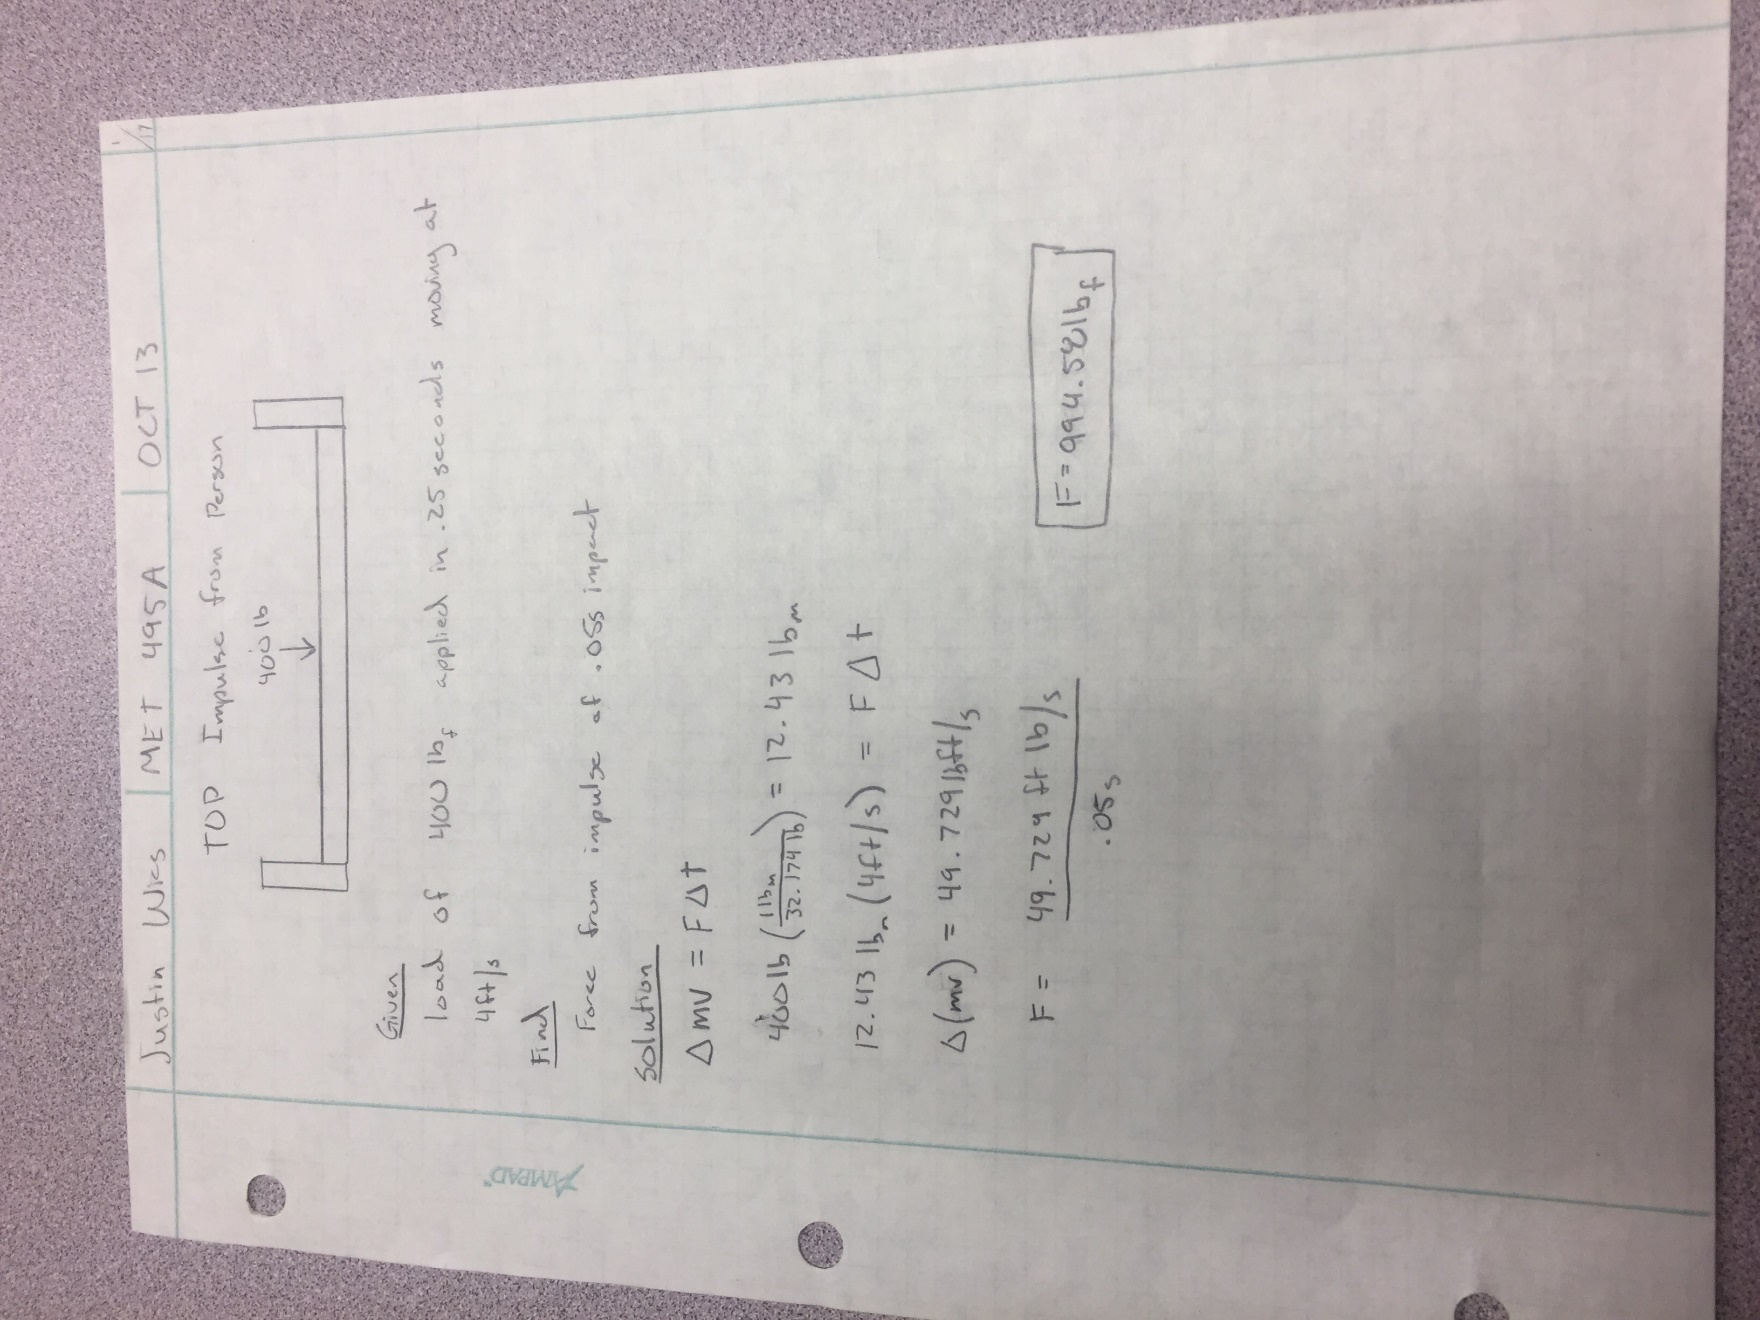 Justin Wies | MET 495A | OCT 13
1/17
TOP Impulse from Person
400 lb
Given
load of 400 lbf applied in .25 seconds moving at
4ft/s
Find
Force from impulse of .05s impact
Solution
Δ mv = F Δ t
400 lb (1 lbm / 32.174 lb) = 12.43 lbm
12.43 lbm (4ft/s) = F Δ t
Δ(mv) = 49.729 lbft/s
F = 49.729 ft lb/s / .05s
F = 994.58 lbf
AMPAD